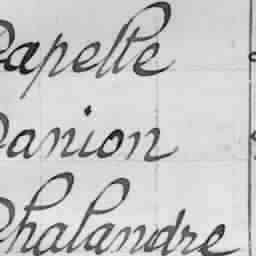 Capelle
Danion
Chalandre